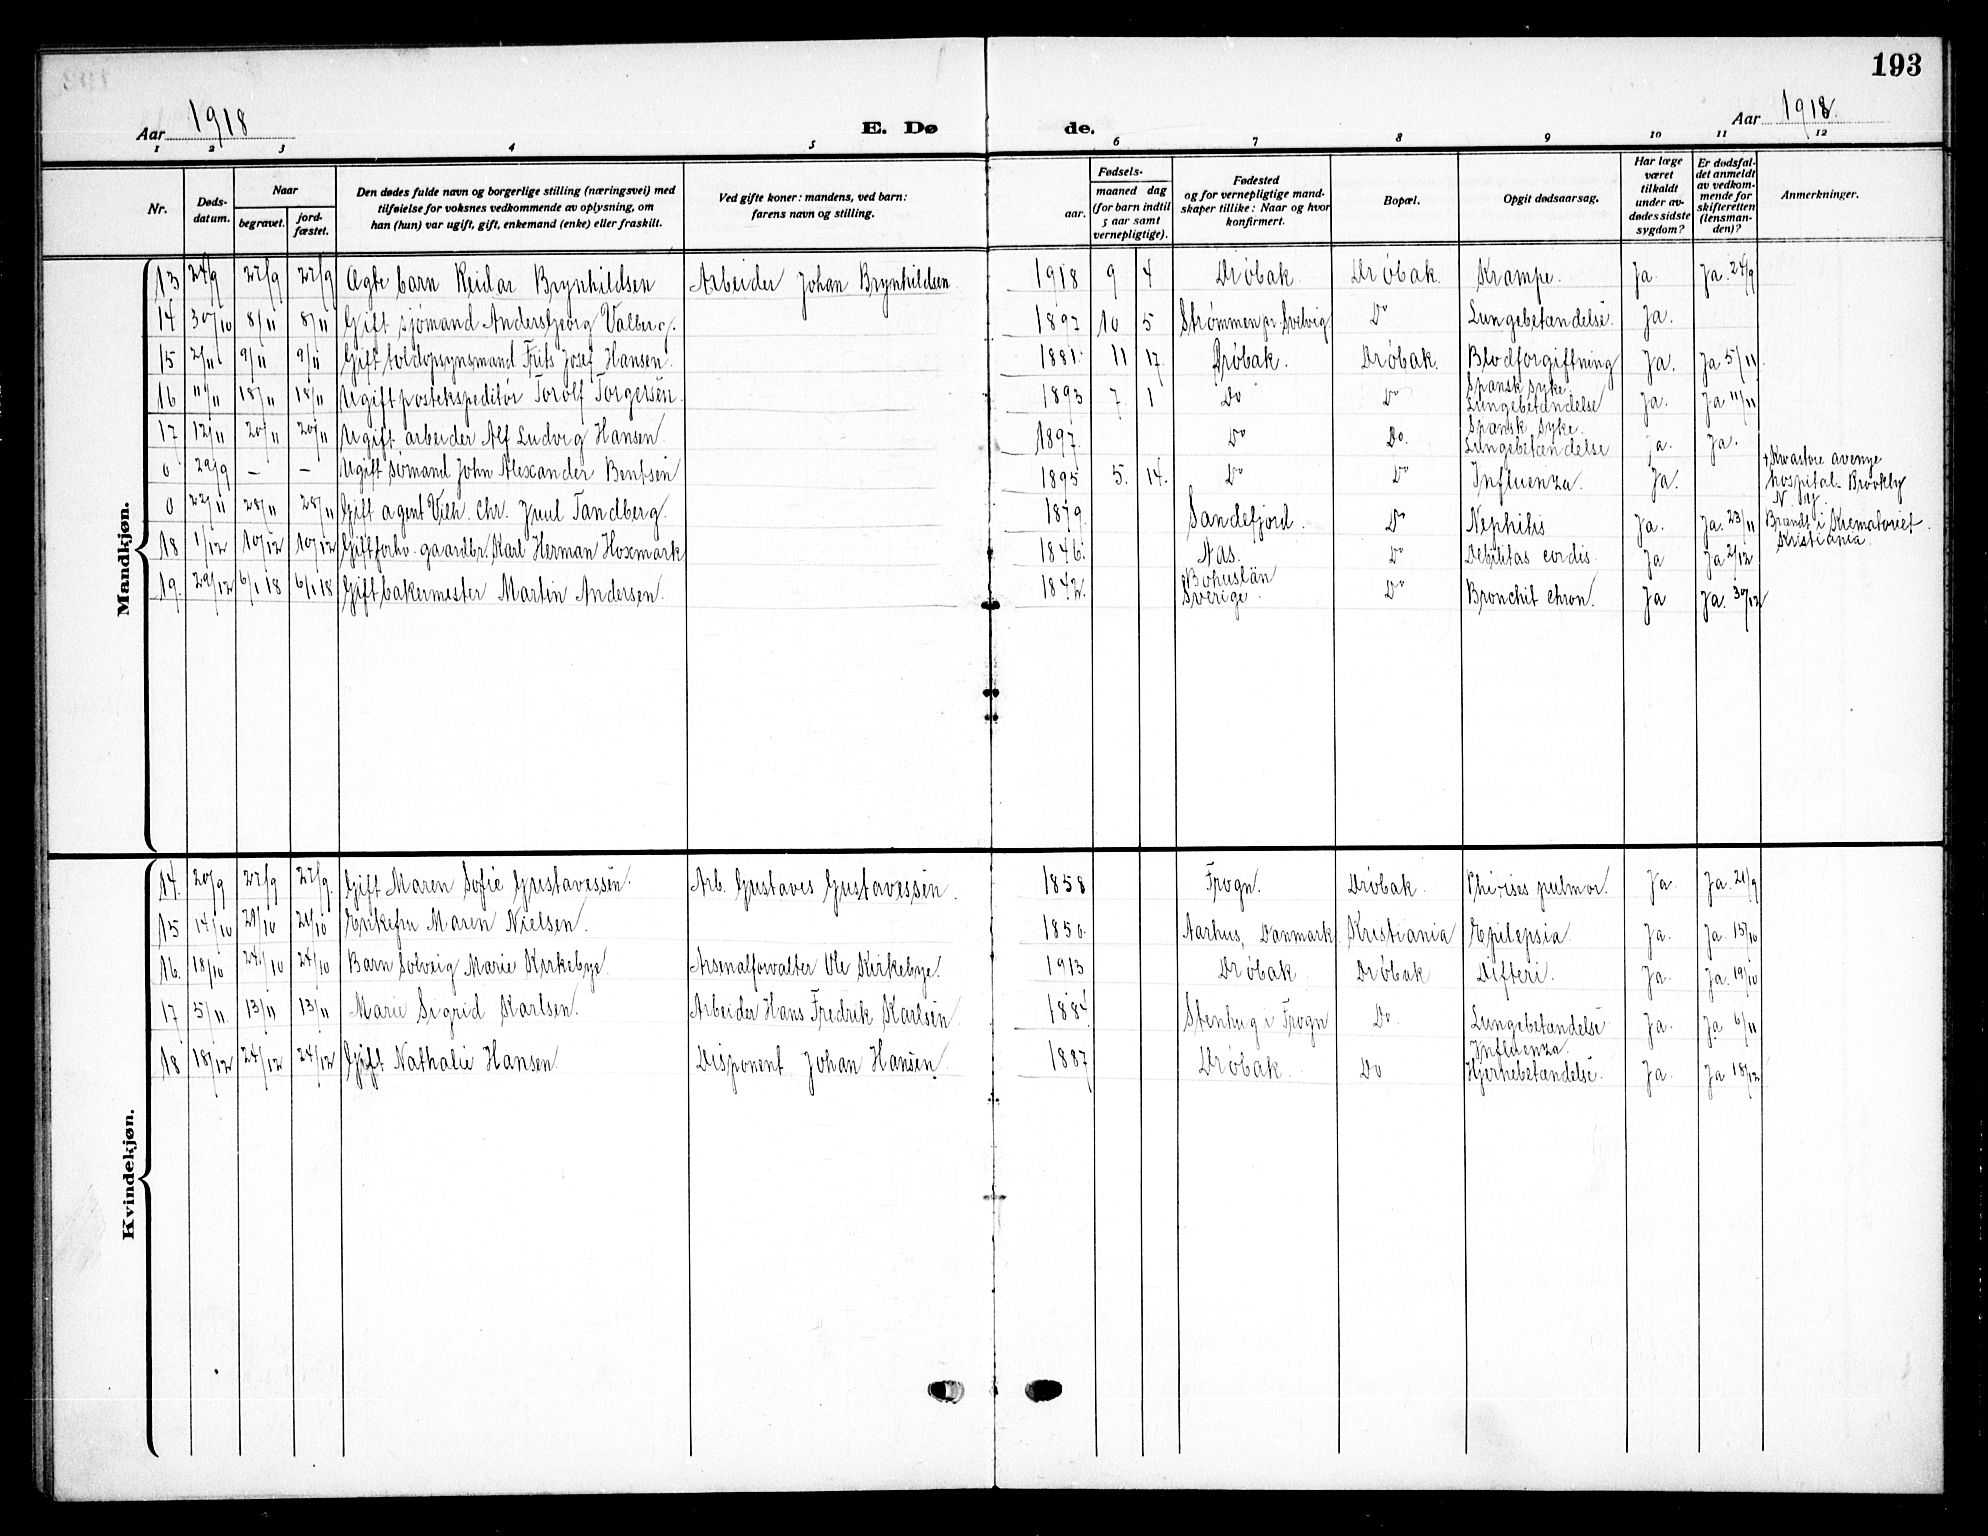 193
Aar 1918
E. Dø
de.
Aar 1918.
1 2 3 4 5 6 7 8 9 10 11 12
Nr.
Døds-
datum.
Naar
begravet.
jord-
fæstet.
Den dødes fulde navn og borgerlige stilling (næringsvei) med
tilføielse for voksnes vedkommende av oplysning, om
han (hun) var ugift, gift, enkemand (enke) eller fraskilt.
Ved gifte koner: mandens, ved barn:
farens navn og stilling.
Fødsels-
aar.
maaned dag
(for barn indtil
5 aar samt
vernepligtige).
Fødested
og for vernepligtige mand-
skaper tillike: Naar og hvor
konfirmert.
Bopæl.
Opgit dødsaarsag.
Har læge
været
tilkaldt
under av-
dødes sidste
sygdom?
Er dødsfal-
det anmeldt
av vedkom-
mende for
skifteretten
(lensman-
den)?
Anmerkninger.
Mandkjøn.
13 24/9 27/9 27/9 Ægte barn Reidar Brynhildsen Arbeider Johan Brynhildsen. 1918 9 4 Drøbak Drøbak. Krampe. Ja. Ja. 24/9
14 30/10 8/11 8/11 Gift sjømand Anders Georg Valberg. 1897 10 5 Strømmen pr Svelvig Do Lungebetændelse. Ja.
15 2/11 9/11 9/11 Gift toldopsynsmand Frits Josef Hansen. 1881. 11 17. Drøbak. Drøbak. Blodforgiftning Ja. Ja 5/11.
16 11/11 18/11 18/11 Ugift postekspeditør Torolf Torgersen. 1893 7. 1 Do Do Spansk syke. Lungebetændelse Ja. Ja 11/11
17 12/11 20/11 20/11 Ugift arbeider Alf Ludvig Hansen. 1897. Do Do. Spansk syke. Lungebetændelse Ja. Ja.
0 29/9 – – Ugift sømand John Alexander Bentsen 1895 5. 14. Do Do Influenza. Ja. avenye hospital. Brookly N. Jy.
0 22/11 28/11 28/11 Gift agent Vilh. Chr. Juul Tandberg. 1879. Sandefjord. Do Nephitis Ja. Ja. 23/11 Brændt i Krematoriet Kristiania.
18 1/12 10/12 10/12 Gift forhv. gaardbr. Karl Herman Hoxmark 1846. Aas. Do Debilitas cordis. Ja Ja 2/12
19. 29/12 6/1 18 6/1 18 Gift bakermester Martin Andersen. 1842. Bohuslän Sverige. Do Bronchit chron. Ja Ja. 30/12
Kvindekjøn.
14. 20/9 27/9 27/9. Gift Maren Sofie Gustavessen. Arb. Gustaves Gustavessen. 1858 Frogn. Drøbak. Phtises pulmor. Ja. Ja. 21/9
15 14/10 21/10 21/10 Enkefru Maren Nielsen. 1850. Aarhus, Danmark Kristiania Epilepsia. Ja. Ja. 15/10
16. 18/10 24/10 24/10 Barn Solveig Marie Kirkebye. Arsenalforvalter Ole Kirkebye. 1913 Drøbak. Drøbak Difteri. Ja. Ja. 19/10
17 5/11. 13/11 13/11 Marie Sigrid Karlsen. Arbeider Hans Fredrik Karlsen. 1884 Stenhug i Frogn Do. Lungebetændelse Ja. Ja 6/11
18 18/12 24/12 24/12 Gift Nathalie Hansen Disponent Johan Hansen. 1887 Drøbak. Do Influenza. Hjernebetændelse. Ja. Ja 18/12